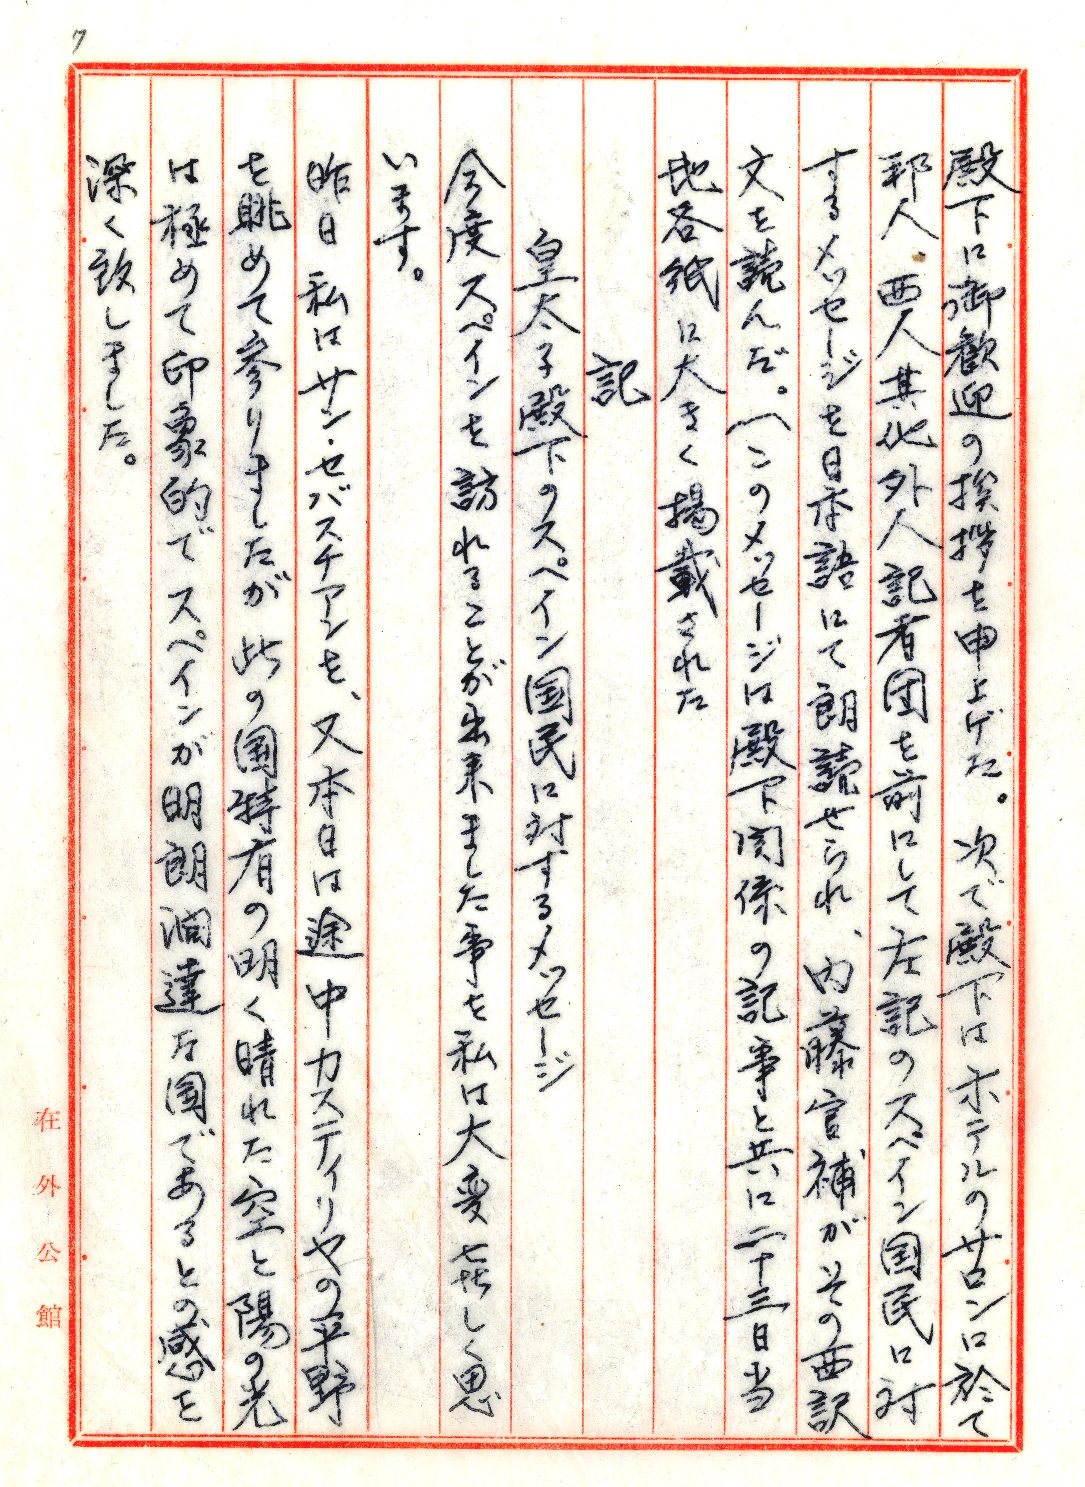 7
殿下に御歓迎の挨拶を申上げた。次で殿下はホテルのサロンに於て
邦人、西人其他外人記者団を前にして左記のスペイン国民に対
するメッセージを日本語にて朗読せられ、内藤官補がその西訳
文を読んだ。(このメッセージは殿下関係の記事と共に二十三日当
地各紙に大きく掲載された
記
皇太子殿下のスペイン国民に対するメッセージ
今度スペインを訪れることが出来ました事を私は大変㐂しく思
います。
昨日私はサン・セバスチアンを、又本日は途中カスティリヤの平野
を眺めて参りましたが此の国特有の明く晴れた空と陽の光
は極めて印象的でスペインが明朗濶達な国であるとの感を
深く致しました。
在外公館